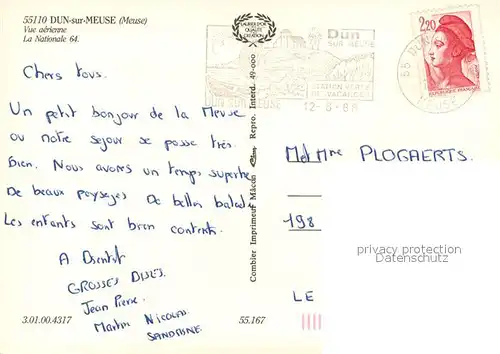 55110 DUN-sur-MEUSE (Meuse)
Vue aérienne
La Nationale 64.
Chers tous.
Un petit bonjour de la Meuse
ou notre sejour se passe très
bien. Nous avons un temps superbe
De beaux paysages De belles balades
Les enfants sont bien contents.
A Bientot
GROSSES BISES.
Jean Pierre.
Martin Nicolas
SANDRINE.
3.01.00.4317
55.167
Combier Imprimeur Mâcon
Repro. Interd. 49-000
SAUNIER D'OR
QUALITÉ
CRÉATION
Dun
SUR MEUSE
STATION VERTE
DE VACANCES
12-8-88
55 DUN
MEUSE
2,20
REPUBLIQUE FRANÇAISE
M et Mme PLOGAERTS.
198
LE
privacy protection
Datenschutz